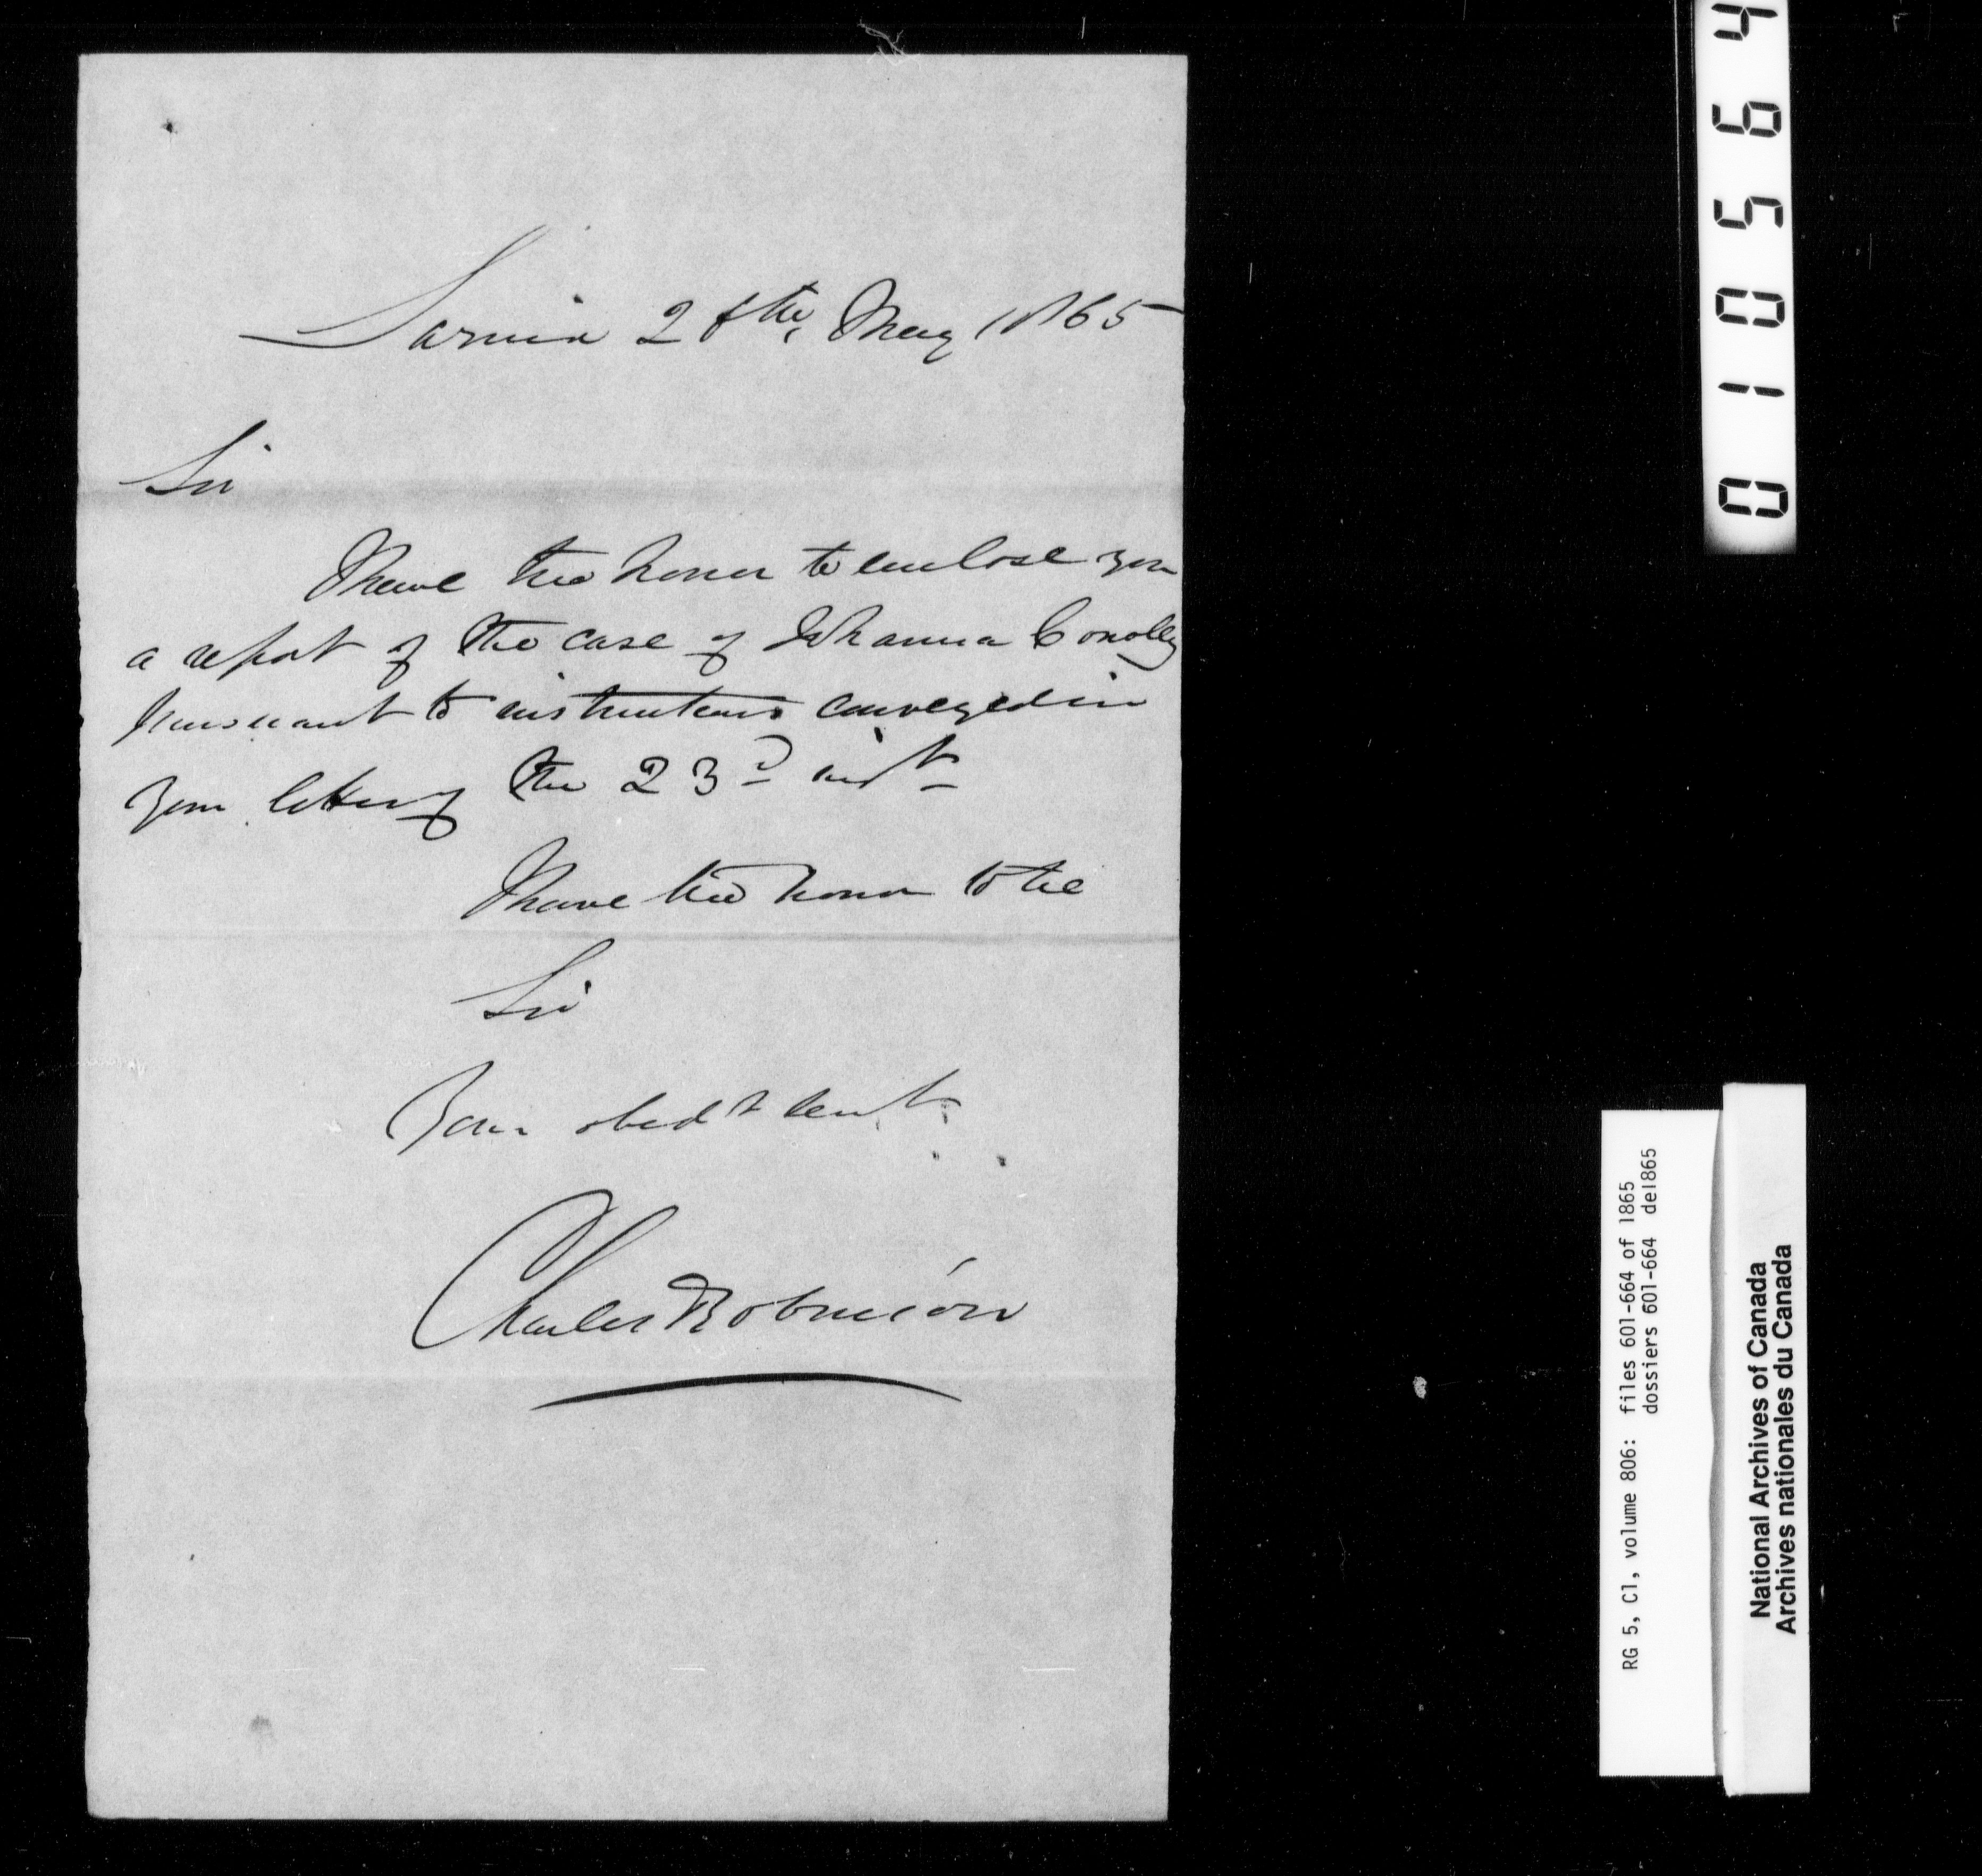 Sarnia 28th, May 1865
Sir
I have the honor to enclose you
a report of the case of Johanna Conolly
pursuant to instructions conveyed in
your letter of the 23d inst
I have the honor to be
Sir
Your obedt servt
Charles Robinson
010564
RG 5, C1, volume 806: files 601-664 of 1865
dossiers 601-664 de1865
National Archives of Canada
Archives nationales du Canada